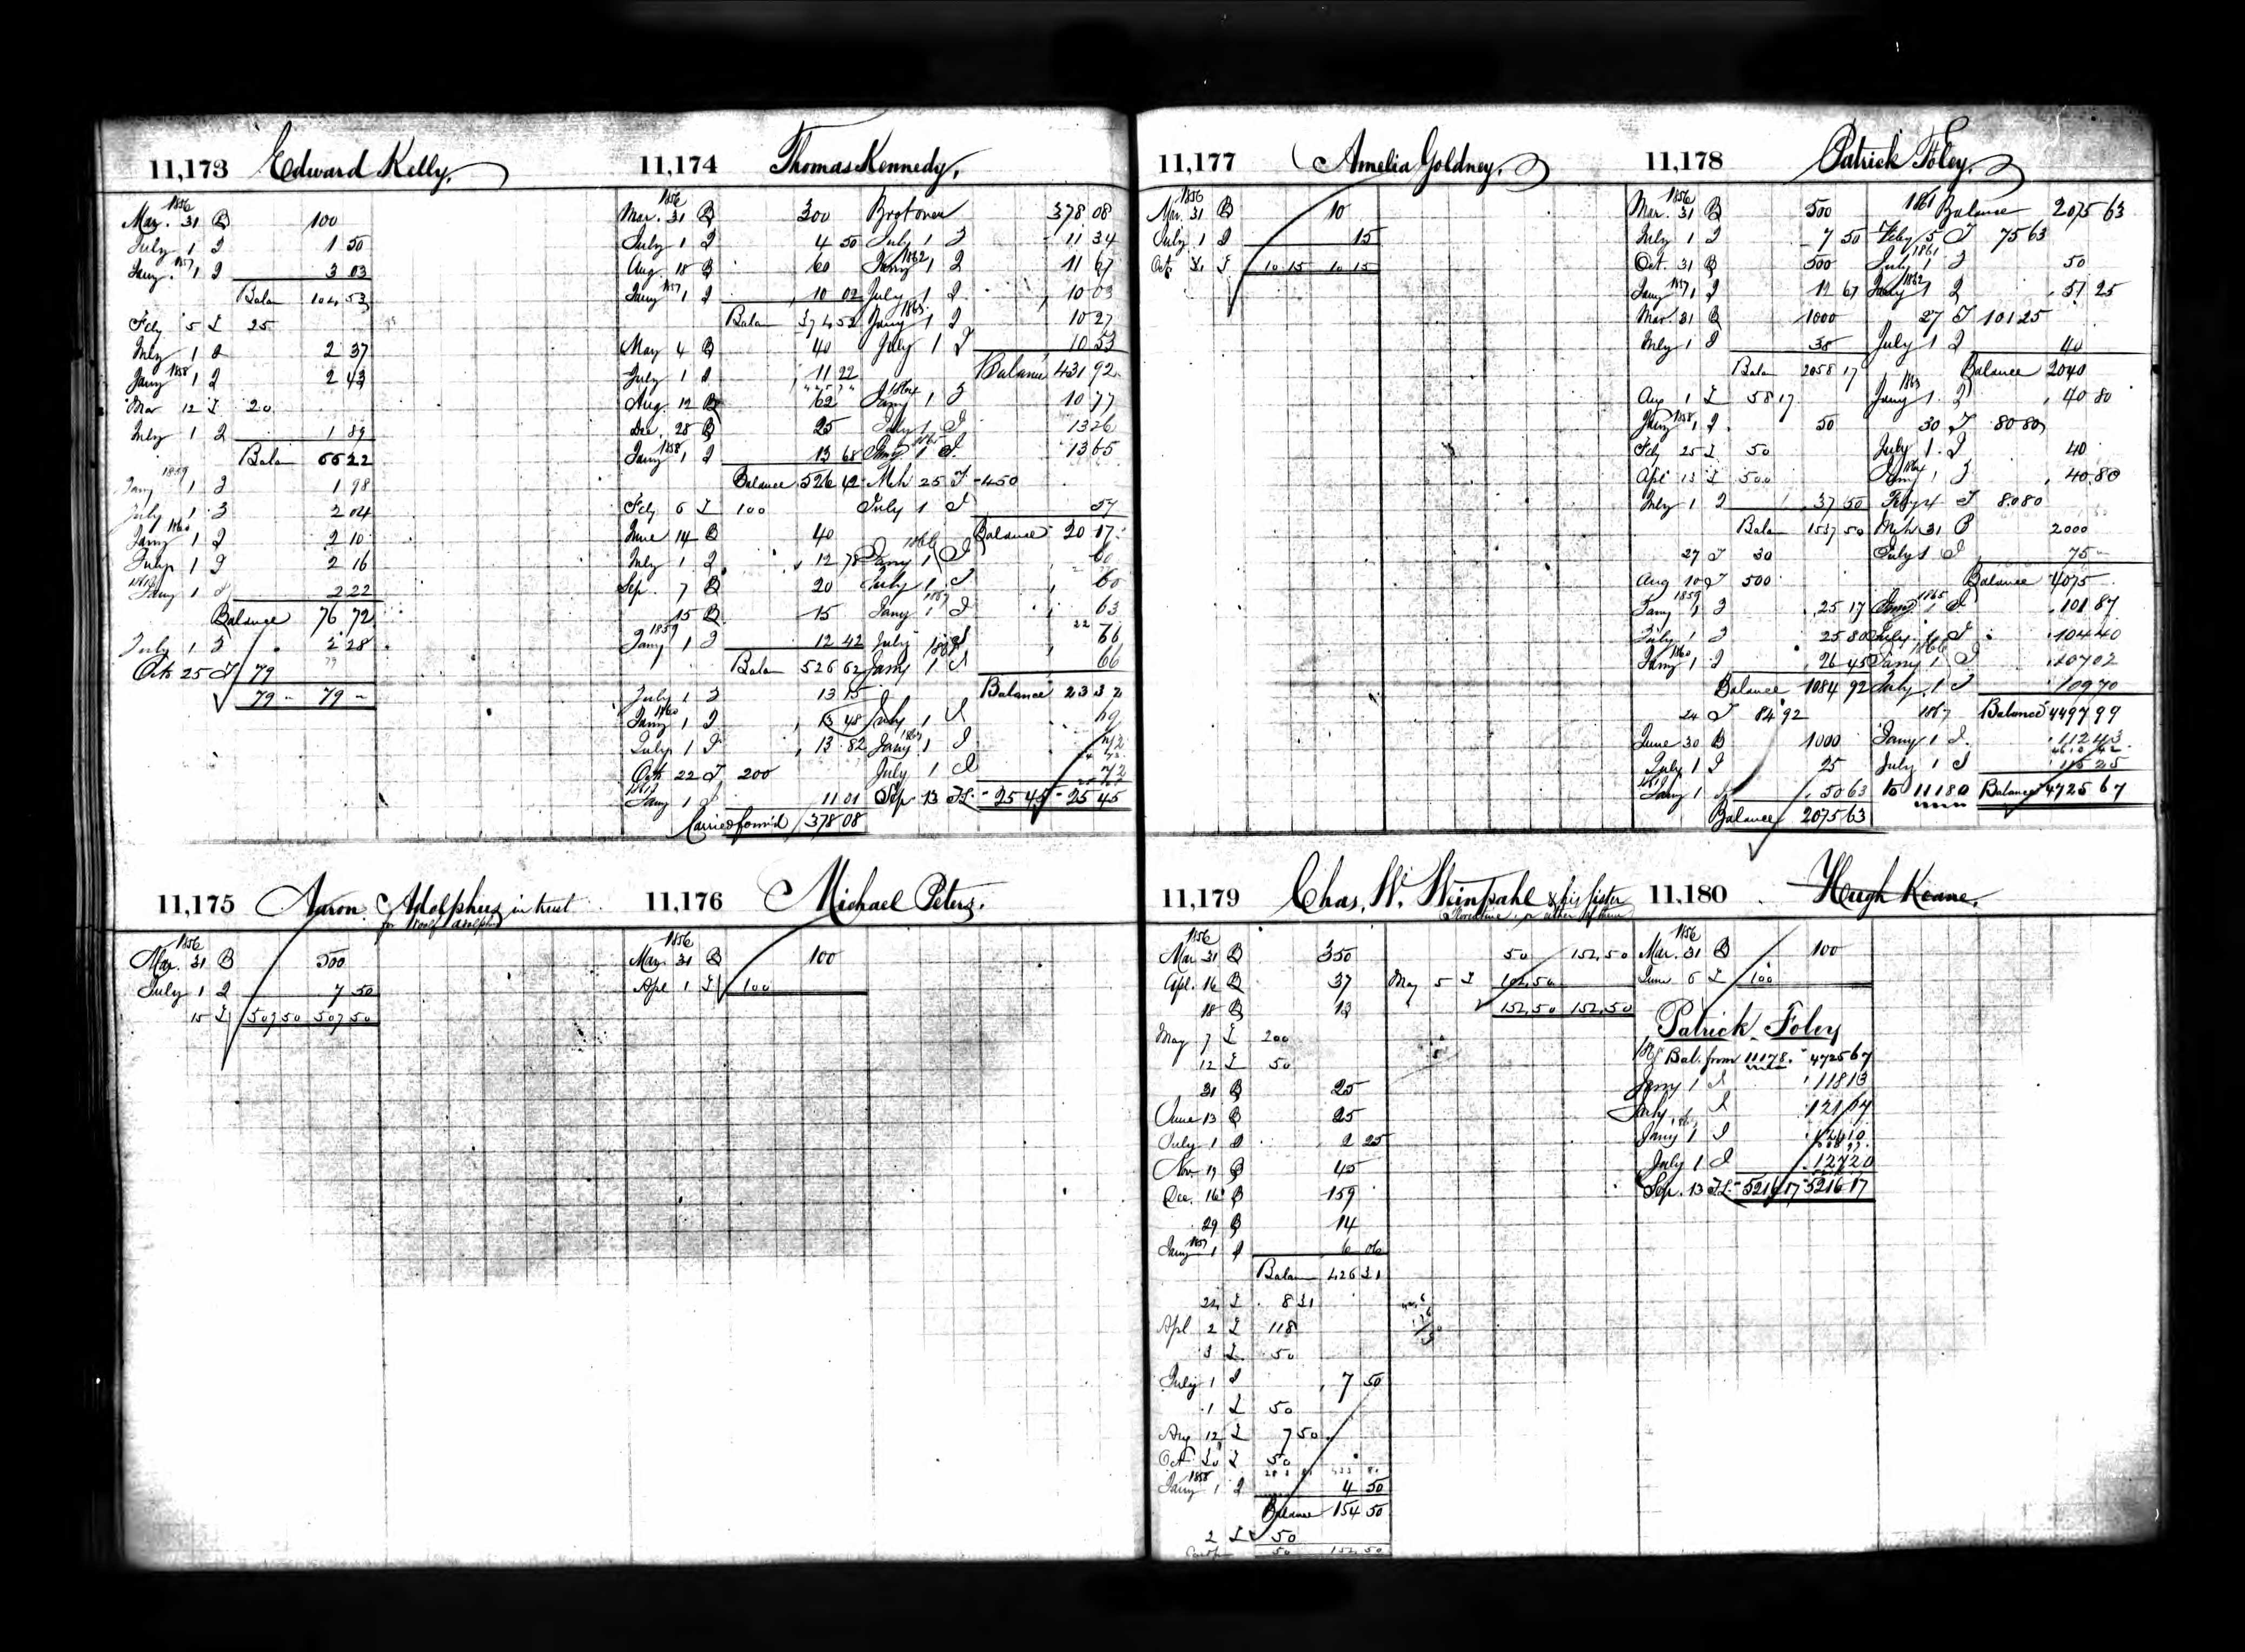 11,173 Edward Kelly.
1856
Mar. 31 B 100
July 1 I 1 50
1857
Jany. 1 I 3 03
Balan 104 53
Feby 5 I 25
July 1 I 2 37
1858
Jany 1 I 2 43
Mar 12 I 20
July 1 I 1 89
Balan 66 22
1859
Jany 1 I 1 98
July 1 I 2 04
1860
Jany 1 I 2 10
July 1 I 2 16
Jany 1 I 2 22
Balance 76 72
July 1 I 2 28
Oct 25 I 79
79 - 79 -
11,174 Thomas Kennedy.
1856
Mar. 31 B 300
July 1 I 4 50
Aug. 18 B 60
1857
Jany 1 I 10 02
Balan 374 52
May 4 B 40
July 1 I 11 22
Aug. 12 B 62
Dec. 28 B 25
1858
Jany 1 I 13 68
Balance 526 42
Feby 6 I 100
June 14 B 40
July 1 I 12 78
Sep. 7 B 20
15 B 15
1859
Jany 1 I 12 42
Balan 526 62
July 1 I 13 15
1860
Jany 1 I 13 48
July 1 I 13 82
Oct 22 I 200
Jany 1 I 11 01
Carried forw'd 378 08
Brot over 378 08
July 1 I 11 34
1862
Jany 1 I 11 67
July 1 I 10 03
1863
Jany 1 I 10 27
July 1 I 10 53
Balance 431 92
1864
Jany 1 I 10 77
July 1 I 13 26
1865
Jany 1 I 13 65
Mch 25 I 450
July 1 I 57
Balance 20 17
1866
Jany 1 I 60
July 1 I 60
1867
Jany 1 I 63
July 1 I 66
Jany 1 I 66
Balance 23 32
July 1 I 69
Jany 1 I 72
July 1 I 72
Sep 13 - 25 45 - 25 45
11,175 Aaron Adolphus in trust
for Woolf Adolphus
1856
Mar. 31 B 500
July 1 I 7 50
15 I 507 50 507 50
11,176 Michael Peters.
1856
Mar. 31 B 100
Apl 1 I 100
11,177 Amelia Goldney.
1856
Mar. 31 B 10
July 1 I 15
Oct. I 10 15 10 15
11,178 Patrick Foley.
1856
Mar. 31 B 500
July 1 I 7 50
Oct. 31 B 500
1857
Jany 1 I 12 67
Mar. 31 B 1000
July 1 I 38
Balan 2058 17
Aug 1 I 58 17
1858
Jany 1 I 50
Feby 25 I 50
Apl 13 I 500
July 1 I 37 50
Balan 1537 50
27 I 30
Aug 10 I 500
1859
Jany 1 I 25 17
July 1 I 25 80
1860
Jany 1 I 26 45
Balance 1084 92
24 I 84 92
June 30 B 1000
July 1 I 25
Jany 1 I 50 63
Balance 2075 63
1861 Balance 2075 63
Feby 5 I 75 63
1861
July 1 I 50
1862
Jany 1 I 51 25
27 I 101 25
July 1 I 40
Balance 2040
1863
Jany 1 I 40 80
30 I 80 80
July 1 I 40
1864
Jany 1 I 40 80
Feby 4 I 80 80
Mch 31 B 2000
July 1 I 75 -
Balance 4075
1865
Jany 1 I 101 87
July 1 I 104 40
1866
Jany 1 I 107 02
July 1 I 109 70
1867 Balance 4497 99
Jany 1 I 112 43
July 1 I 115 25
to 11180 Balance 4725 67
11,179 Chas. W. & his sister
or either of them
1856
Mar 31 B 350
Apl. 16 B 37
18 B 13
May 7 I 200
12 I 50
31 B 25
June 13 B 25
July 1 I 2 25
Nov. 19 B 45
Dec. 16 B 159
29 B 14
1857
Jany 1 I 6 06
Balan 426 31
22 I 8 31
Apl 2 I 118
3 I 50
July 1 I 7 50
1 I 50
Aug 12 I 7 50
Oct I 50
1858
Jany 1 I 4 50
Balance 154 50
2 I 50
50 152 50
50 152,50
May 5 I 102,50
152,50 152,50
11,180 Hugh Keane.
1856
Mar. 31 B 100
June 6 I 100
Patrick Foley
Bal. from 11178. 4725 67
Jany 1 I 118 13
July 1 I 121 04
Jany 1 I 124 10
July 1 I 127 20
Sep. 13 5216 17 5216 17